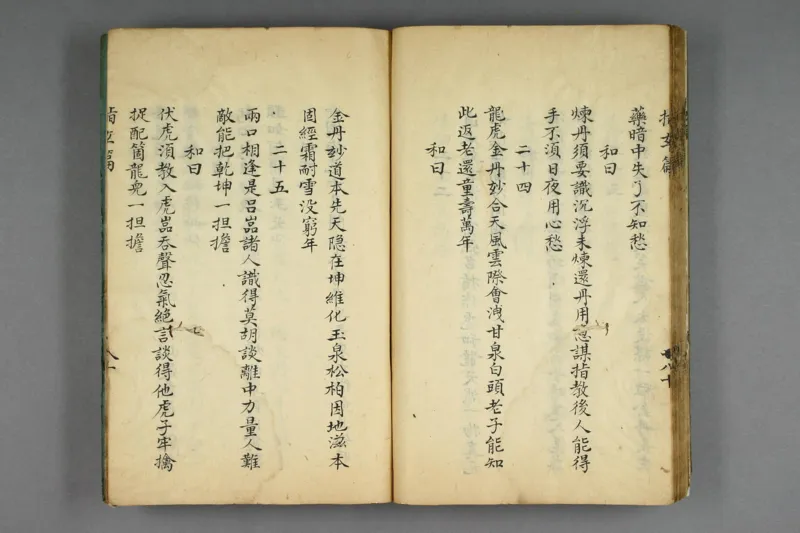 藥暗中失了不知愁
和曰
煉丹須要識沉浮未煉還丹用意謀指教後人能得
手不須日夜用心愁
二十四
龍虎金丹妙合天風雲際會洩甘泉白頭老子能知
此返老還童壽萬年
和曰
金丹妙道本先天隐在坤維化玉泉松柏因地滋本
固經霜耐雪没窮年
二十五
兩口相逢是吕嵓諸人識得莫胡談離中力量人難
敵能把乾坤一担擔
和曰
伏虎湏教入虎嵓吞聲忍氣絶言談得他虎子牢擒
捉配箇龍児一担擔